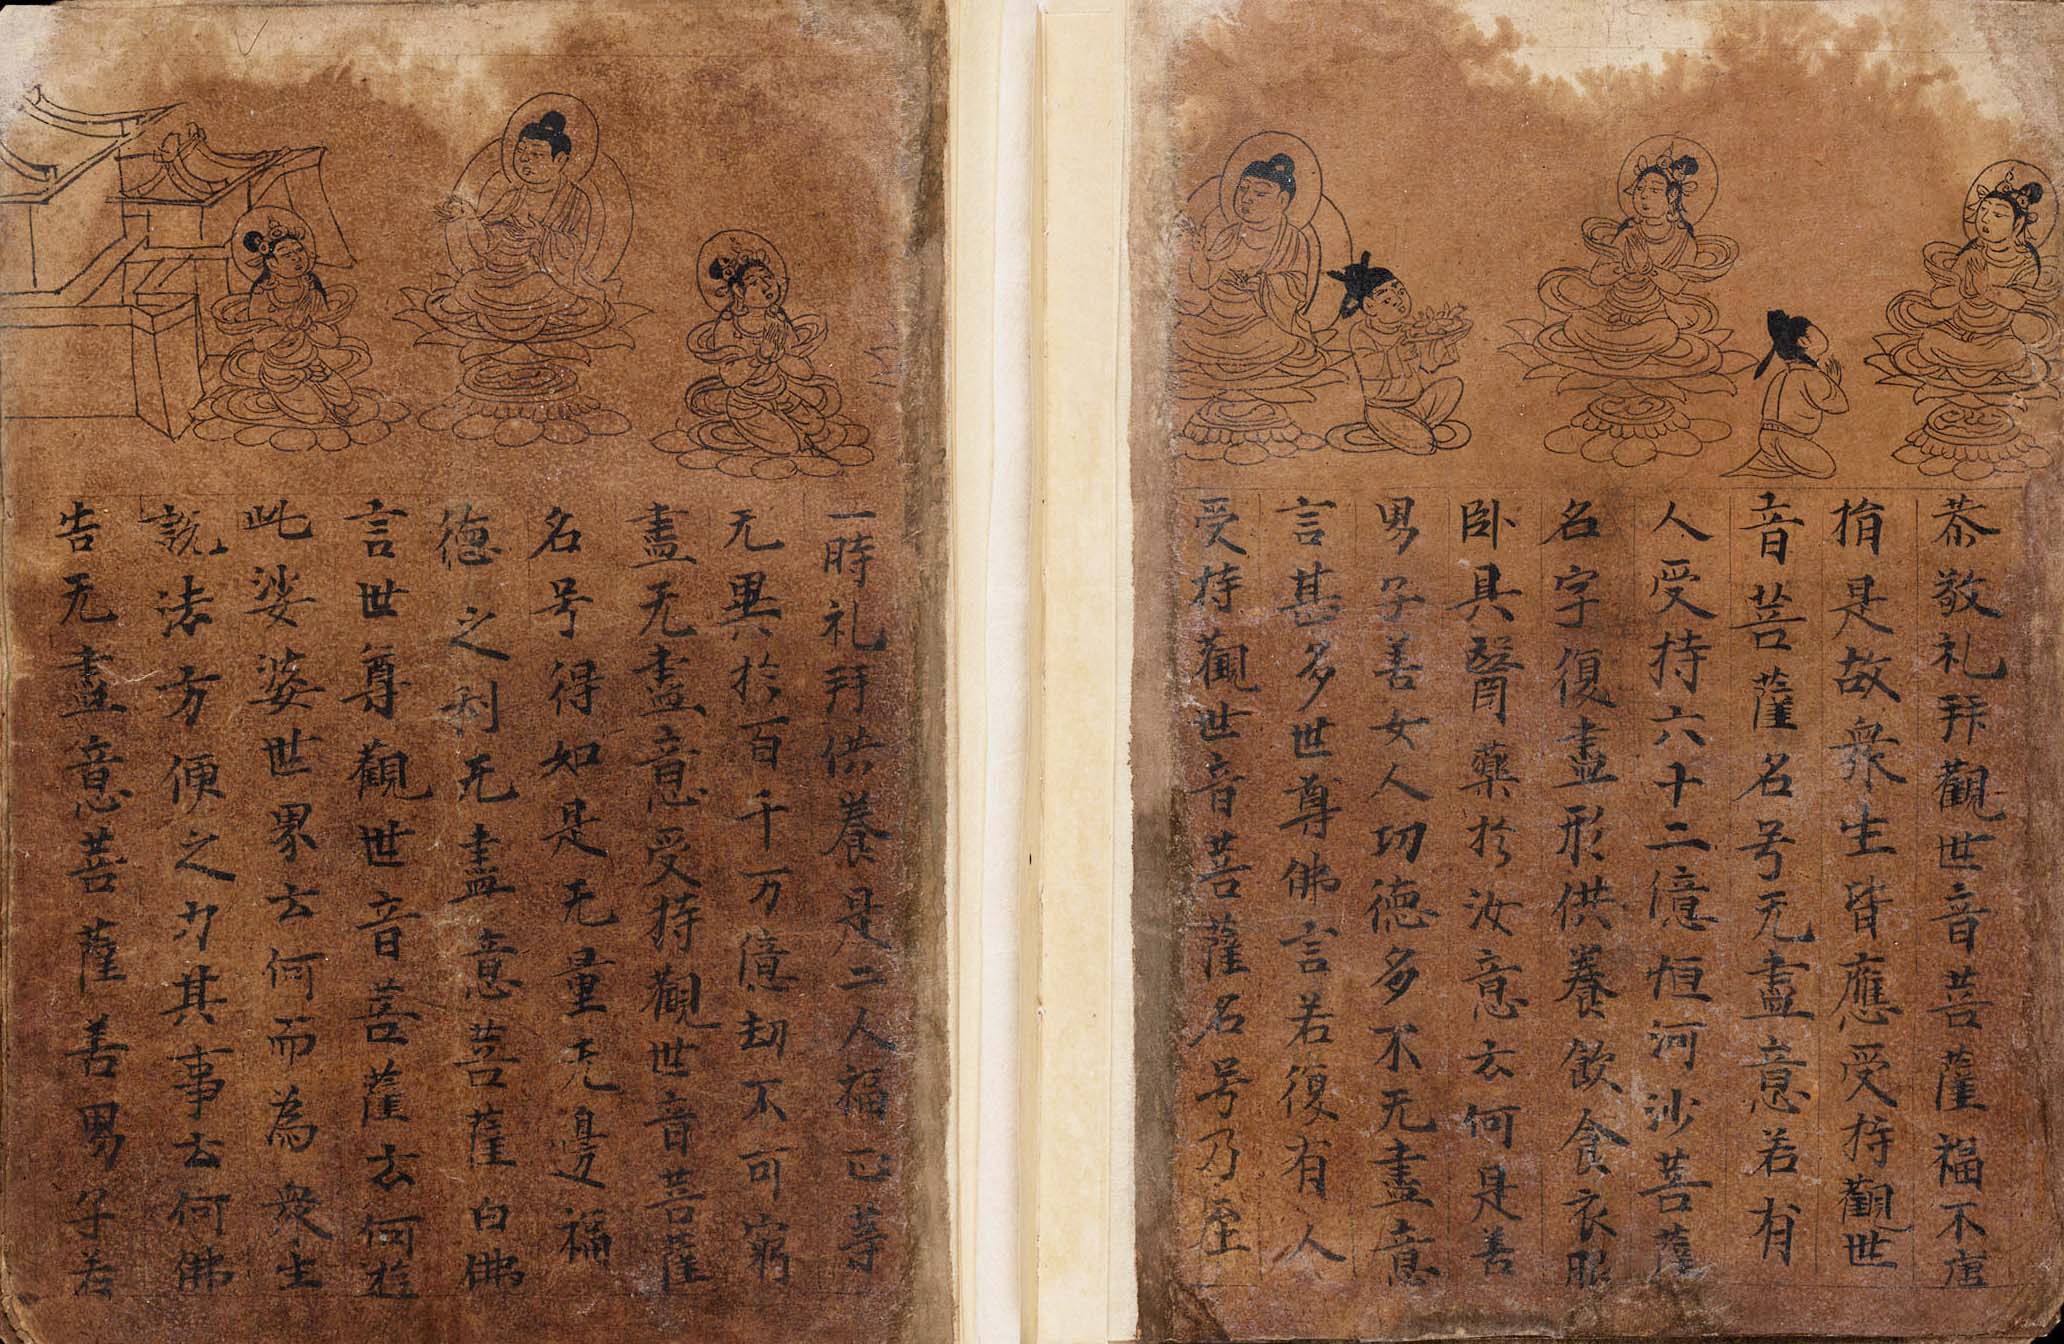 恭敬礼拜觀世音菩薩福不唐
捐是故衆生皆應受持觀世
音菩薩名号无盡意若有
人受持六十二億恒河沙菩薩
名字復盡形供養飲食衣服
卧具醫藥於汝意云何是善
男子善女人㓛德多不无盡意
言甚多世尊佛言若復有人
受持觀世音菩薩名号乃至
一時礼拜供養是二人福正等
无異於百千万億劫不可窮
盡无盡意受持觀世音菩薩
名号得如是无量无邊福
德之利无盡意菩薩白佛
言世尊觀世音菩薩云何遊
此娑婆世界云何而為衆生
說法方便之力其事云何佛
告无盡意菩薩善男子若